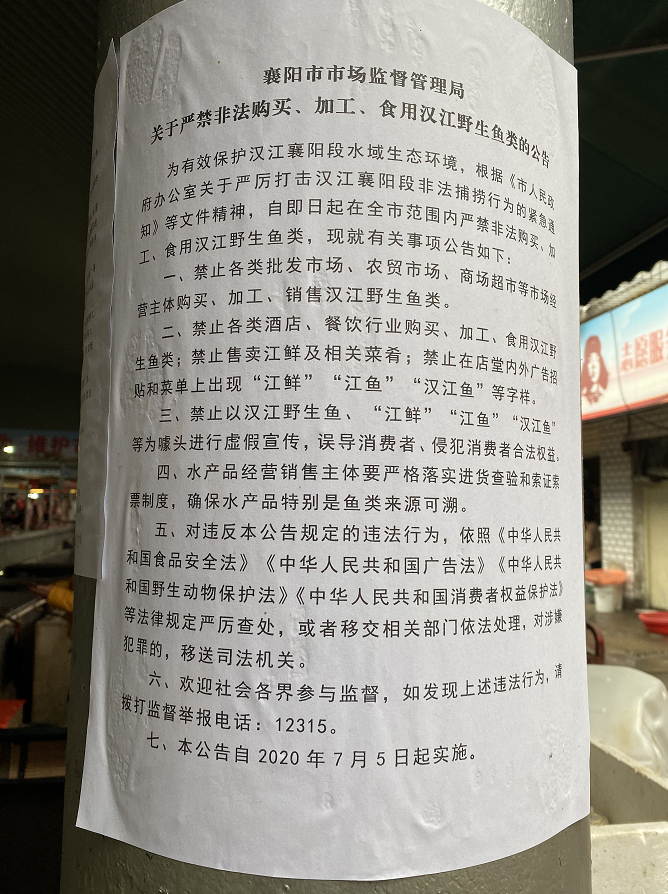 襄阳市市场监督管理局
关于严禁非法购买、加工、食用汉江野生鱼类的公告
为有效保护汉江襄阳段水域生态环境，根据《市人民政
府办公室关于严厉打击汉江襄阳段非法捕捞行为的紧急通
知》等文件精神，自即日起在全市范围内严禁非法购买、加
工、食用汉江野生鱼类，现就有关事项公告如下：
一、禁止各类批发市场、农贸市场、商场超市等市场经
营主体购买、加工、销售汉江野生鱼类。
二、禁止各类酒店、餐饮行业购买、加工、食用汉江野
生鱼类；禁止售卖江鲜及相关菜肴；禁止在店堂内外广告招
贴和菜单上出现“江鲜”“江鱼”“汉江鱼”等字样。
三、禁止以汉江野生鱼、“江鲜”“江鱼”“汉江鱼”
等为噱头进行虚假宣传，误导消费者、侵犯消费者合法权益。
四、水产品经营销售主体要严格落实进货查验和索证索
票制度，确保水产品特别是鱼类来源可溯。
五、对违反本公告规定的违法行为，依照《中华人民共
和国食品安全法》《中华人民共和国广告法》《中华人民共
和国野生动物保护法》《中华人民共和国消费者权益保护法》
等法律规定严厉查处，或者移交相关部门依法处理，对涉嫌
犯罪的，移送司法机关。
六、欢迎社会各界参与监督，如发现上述违法行为，请
拨打监督举报电话：12315。
七、本公告自 2020 年 7 月 5 日起实施。
维护